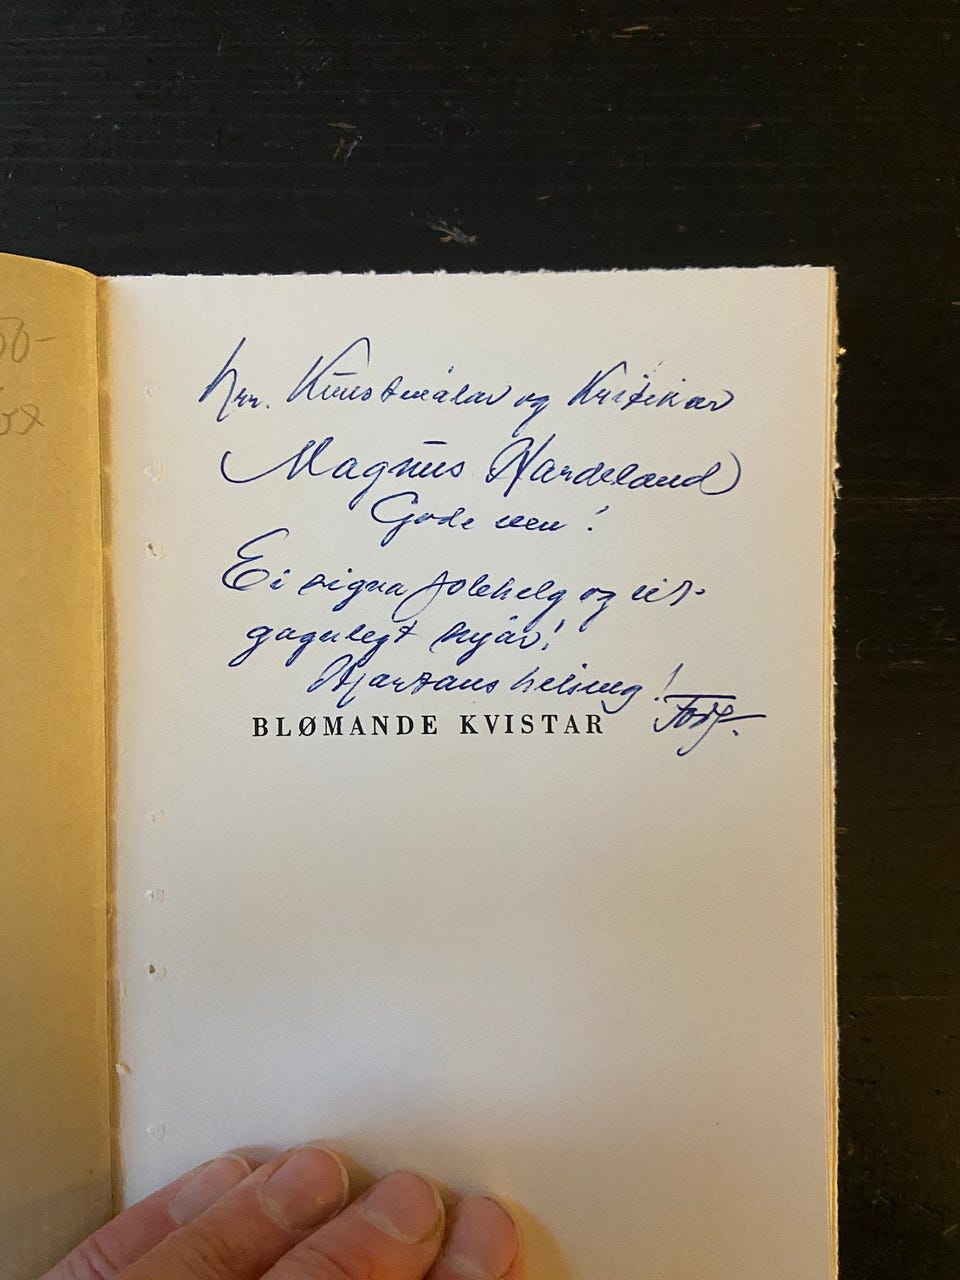 50-
Hrr. Kunstmålar og Kritikar
Magnus Hardeland
Gode ven!
Ei signa jolehelg og eit
gagnlegt nyår!
Hjartans helsing!
BLØMANDE KVISTAR